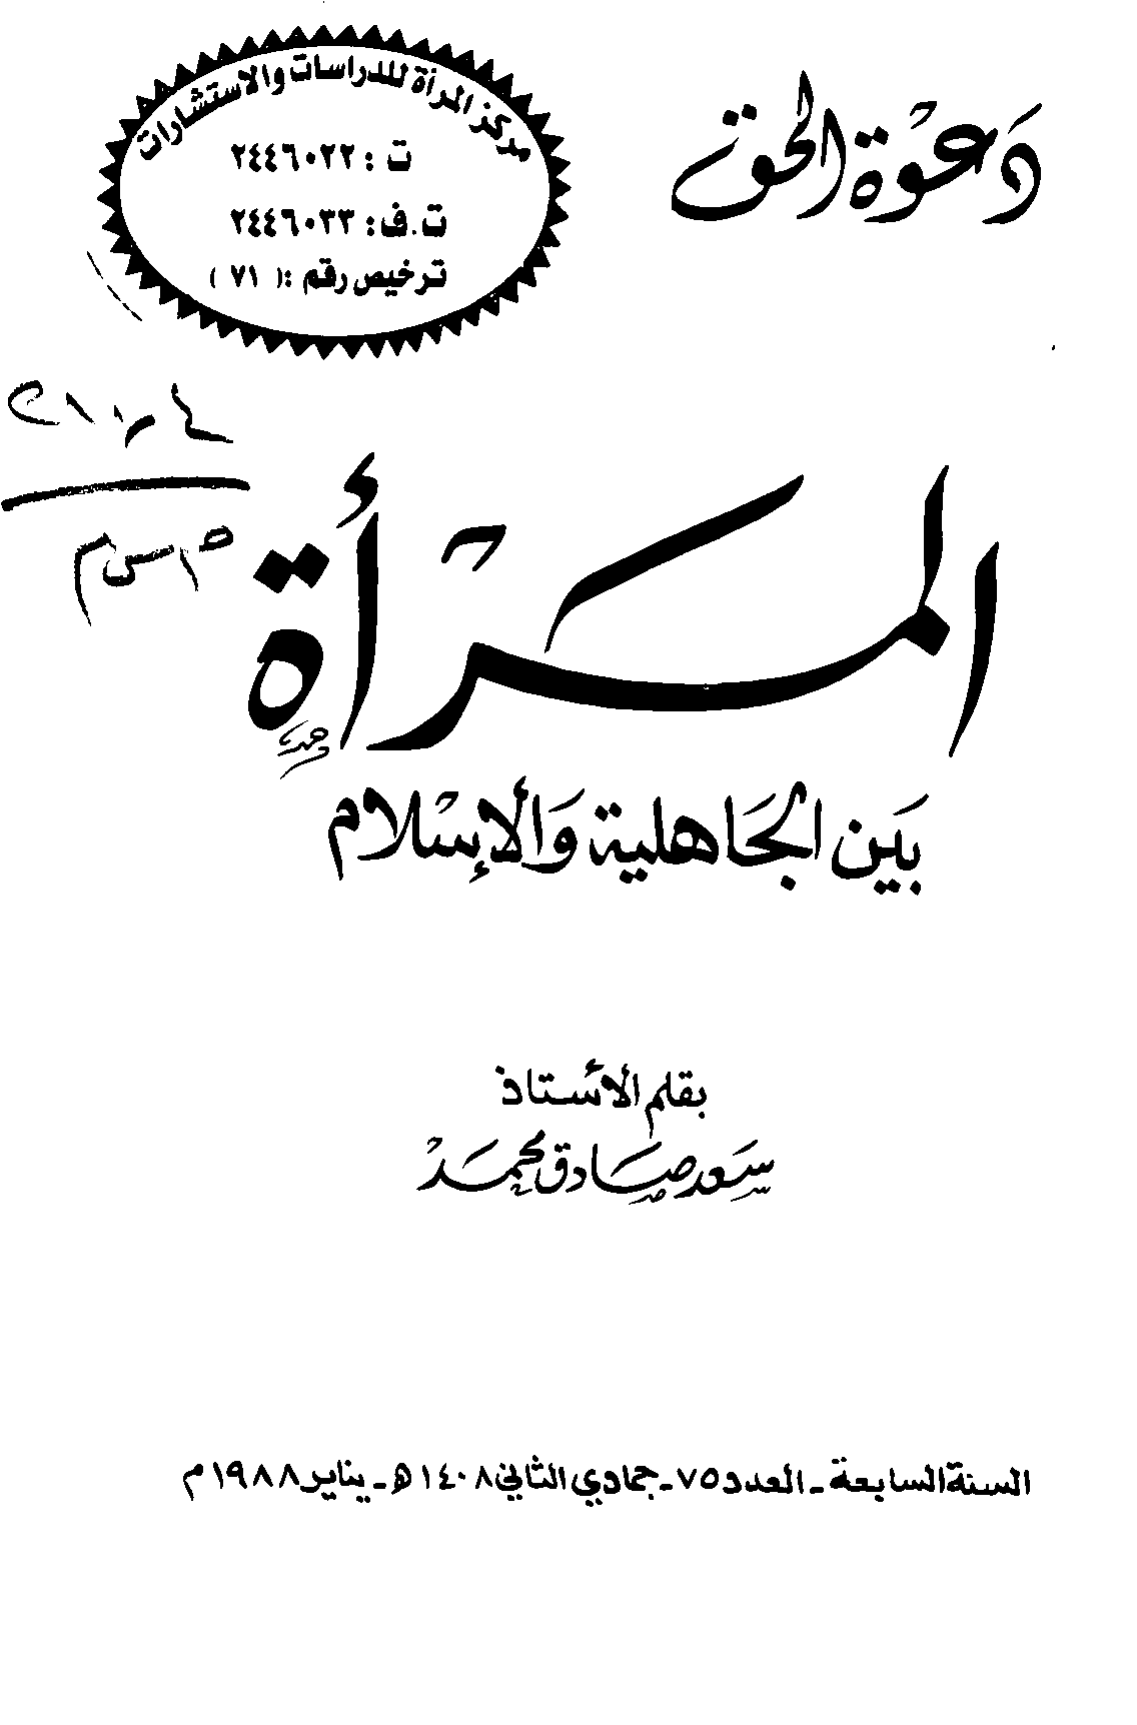 دعوة الحق
مركز المرأة للدراسات والاستشارات
ت : ٢٤٤٦٠٢٢
ت.ف: ٢٤٤٦٠٣٣
ترخيص رقم :( ٧١ )
المرأة
بين الجاهلية والإسلام
بقلم الأستاذ
سعد صادق محمد
السنة السابعة - العدد ٧٥ - جمادي الثاني ١٤٠٨ هـ - يناير ١٩٨٨ م